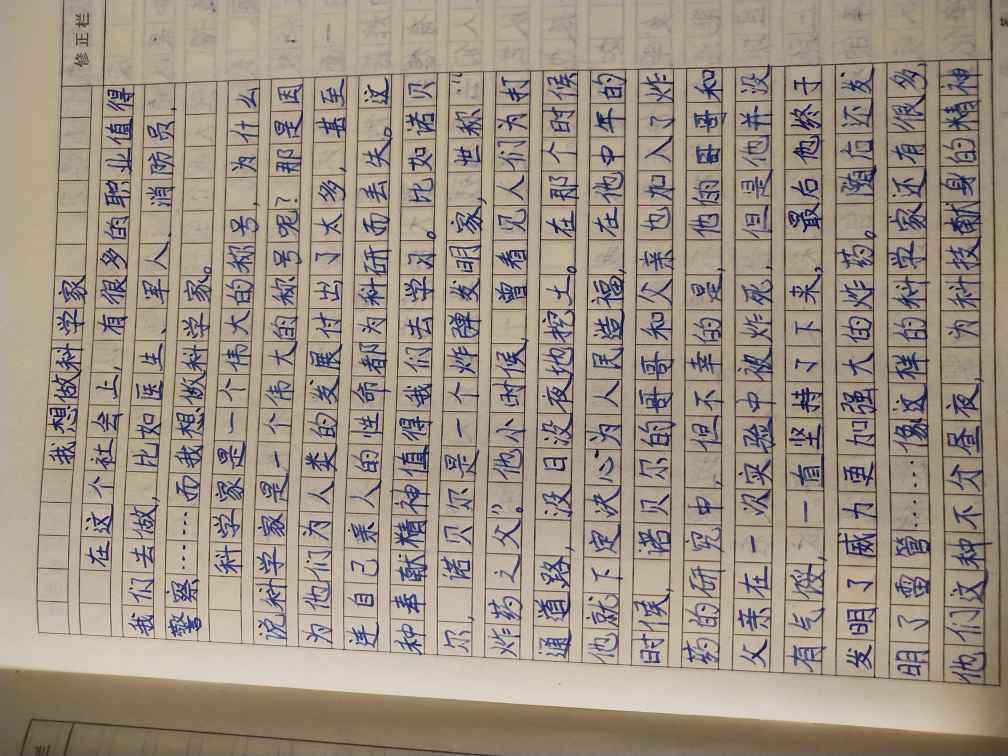 修正栏
我想做科学家
在这个社会上,有很多的职业值得
我们去做,比如医生、军人、消防员,
警察……而我想做科学家。
科学家是一个伟大的称号,为什么
说科学家是一个伟大的称号呢?那是因
为他们为人类的发展付出了太多,甚至
连自己亲人的性命都为科研而丢失。这
种奉献精神值得我们去学习。比如诺贝
尔,诺贝尔是一个炸弹发明家,世称“
炸药之父”。他小时候,曾看见人们为打
通道路,没日没夜地挖土。在那个时候
他就下定决心为人民造福,在他中年的
时候,诺贝尔的哥哥和父亲也加入了炸
药的研究中,但不幸的是,他的哥哥和
父亲在一次实验中被炸死,但是他并没
有气馁,一直坚持了下来,最后他终于
发明了威力更加强大的炸药。随后还发
明了雷管……像这样的科学家还有很多,
他们这种不分昼夜,为科技献身的精神